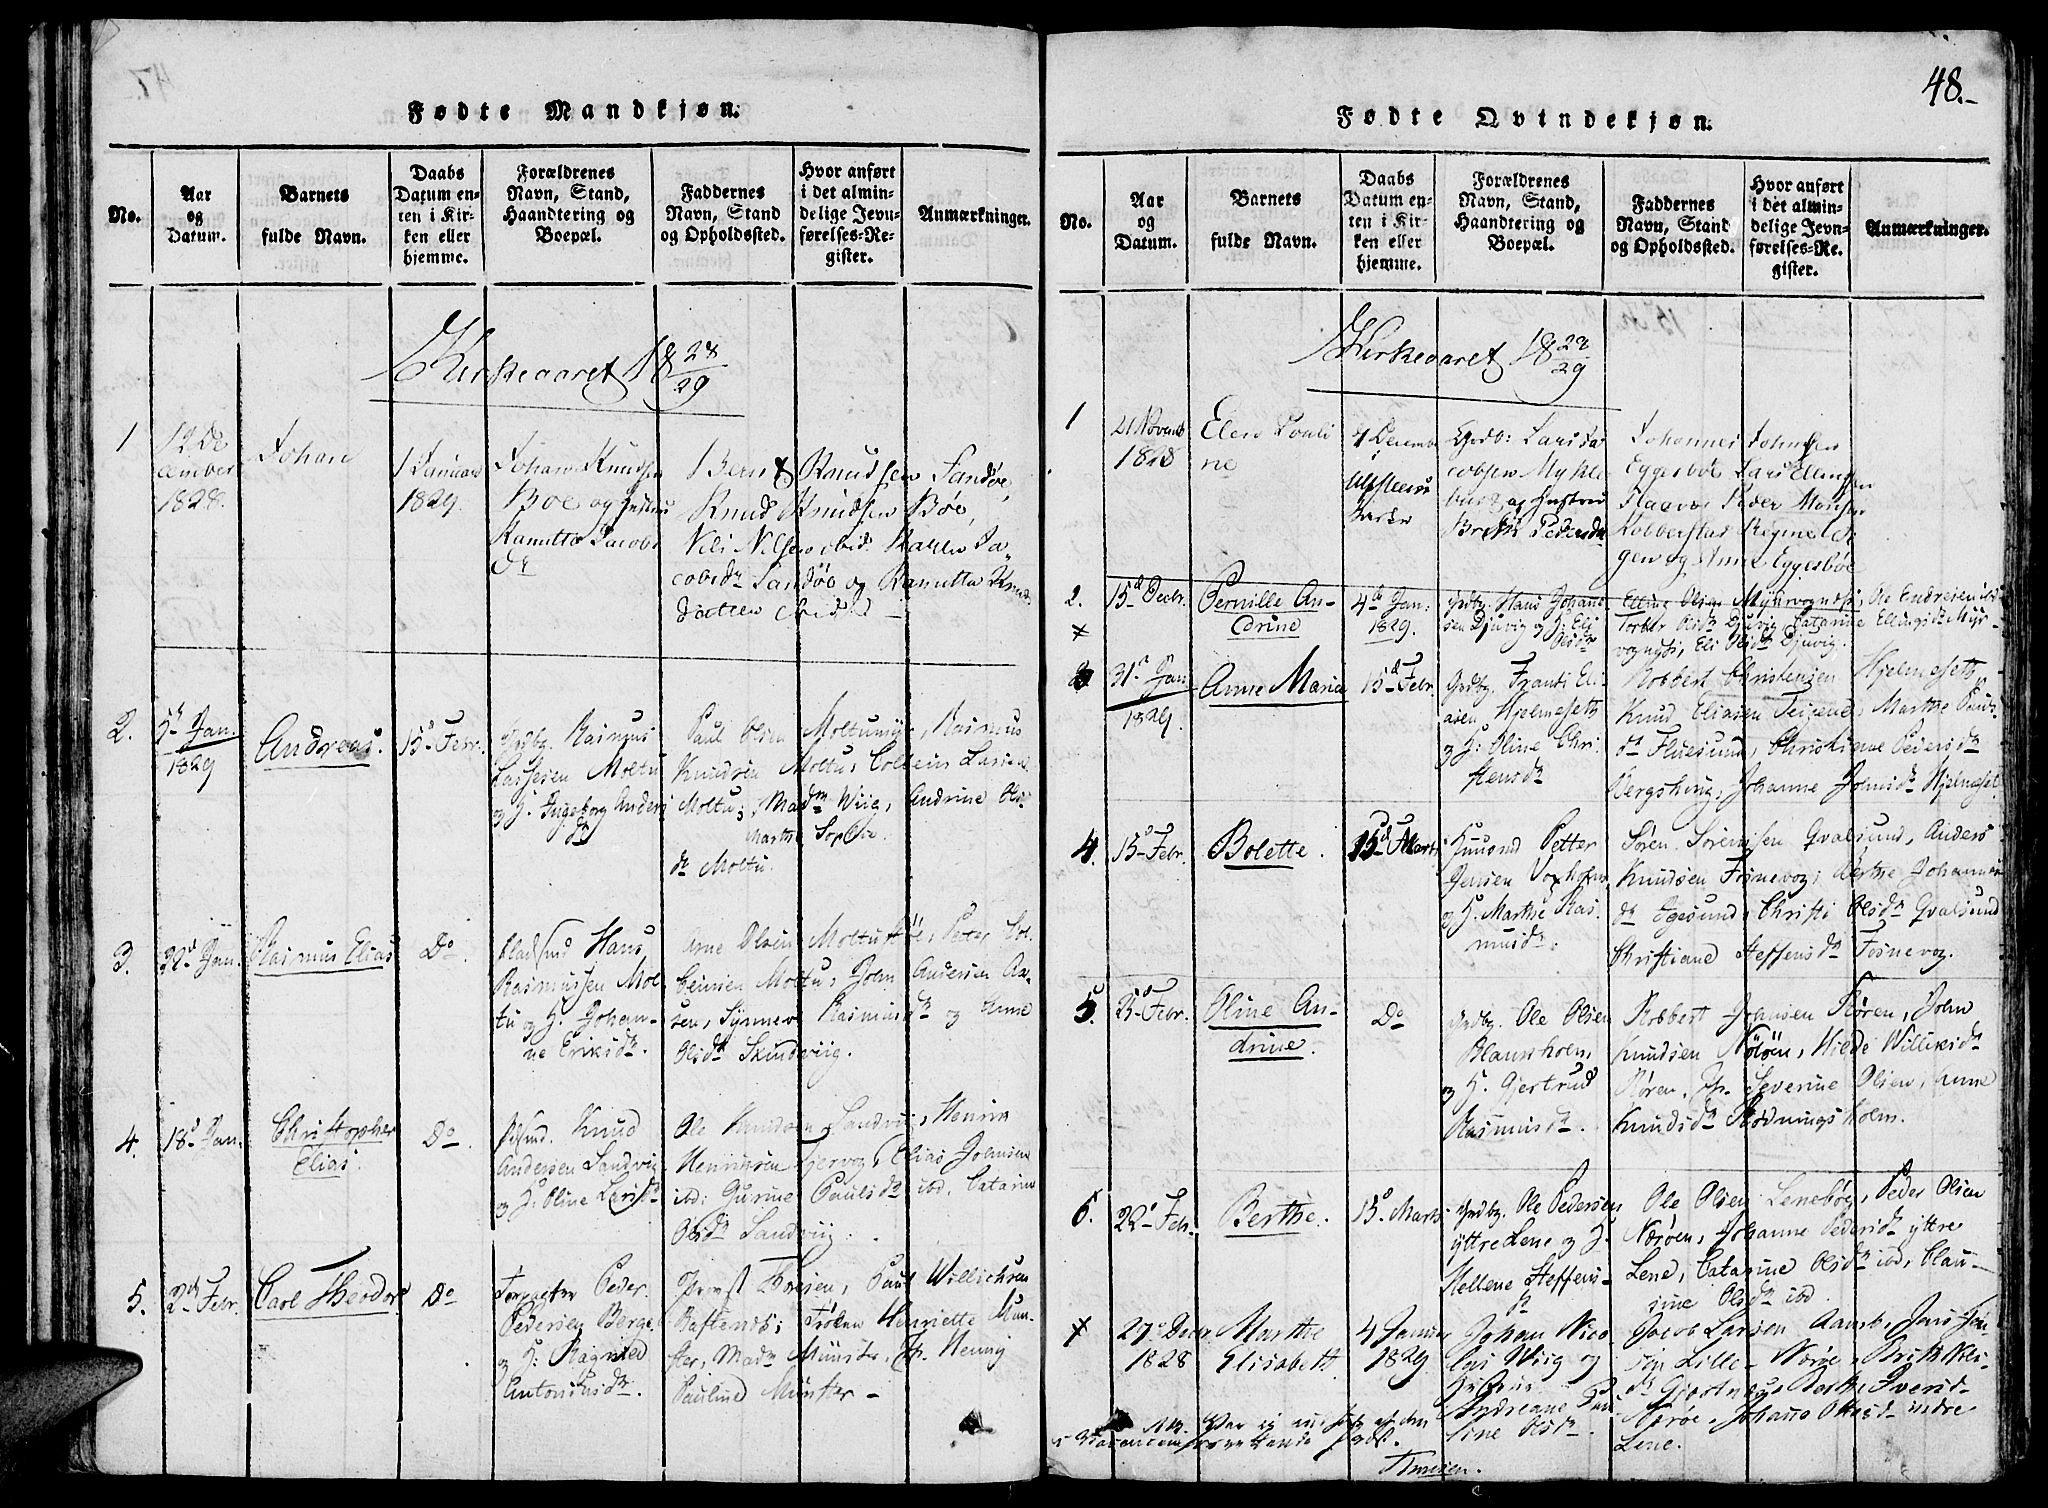 Fødte Mandkjøn.
No.
Aar og Datum.
Barnets fulde Navn.
Daabs Datum enten i Kirken eller hjemme.
Forældrenes Navn, Stand, Haandtering og Boepæl.
Faddernes Navn, Stand og Opholdssted.
Hvor anført i det almindelige Jevnførelses-Register.
Anmærkninger.
Kirkeaaret 18 28/29
1
12 De
cember
1828.
Johan
1 Januar
1829.
Johan Knudsen
Boe og
Kanutte Jacobs
Dr
Bernt Knudsen Sandøe,
Knud Knudsen Bøe,
Nils Nilsen ibid. Karen Ja-
cobsdr Sandøe og Kanutta Knuds
datter ibid
2.
Jan.
1829
Andreas.
15d Febr.
Grdbg. Rasmus
Lassesen Moltu
og H. Ingeborg Anders
dr
Paul Olsen Moltumyr, Rasmus
Knudsen Moltu, Colbein Lassens
Moltu; Madm Wiie, Andrine Ols
Marthe Sophie
dr Moltu.
3.
Jan.
Rasmus Elias
Do.
Hans
Rasmussen Mol-
tu og H. Johan-
ne Eriksdr.
Arne Olsen Moltustøe, Peter Col-
beinsen Moltu, John Andersen
sen, Synnev Rasmusdr og Anne
Olsdr Skindviig.
4.
18d Jan.
Christopher
Elias.
Do
Knud
Andersen Sandvig
og H. Oline Larsdr
Ole Knudsen Sandvig, Henrik
Henriksen Tjervog, Elias Johnsen
ibd: Gurine Paulsdr ibd, Catarine
Olsdr Sandviig.
5.
2d Febr.
Carl Theodor
Do
Peder
Pedersen Berge
og H: Ragnild
Antonsdr.
Provst Thoresen, Paul Willichsen
Røstends; Frøken Henriette Mün-
ster, Madm Münster, Jfr. Henny
Pauline Münster -
48.-
Fødte Qvindekjøn.
No.
Aar og Datum.
Barnets fulde Navn.
Daabs Datum enten i Kirken eller hjemme.
Forældrenes Navn, Stand, Haandtering og Boepæl.
Faddernes Navn, Stand og Opholdssted.
Hvor anført i det almindelige Jevnførelses-Register.
Anmærkninger.
Kirkeaaret 18 28/29
1
21 Novemb
1828
Elen Pouli
ne
7 Decemb
i
Ulfsteens
Kirke
Grdb: Lars Ja
cobsen Mykle
bust og Hustrue
Brith Pedersdr
Johannes Johnsen
Eggesbøe Lars Ellingsen
Flaavær Peder Monsen
Kobberstad
gen og Anne Eggesbøe
2.
15d Decbr.
Pernille An-
drine
4de Jan:
1829.
Grdbg. Hans Johan-
sen Djuvig og H: Eli
Olsdr
Elling Olsen Myrvognes, Ole Endresen ibd
Torber Olsdr Djuvig Catarine Ellingsdr Myr-
vognes, Eli Olsdr Djuvig.
3
31. Jan
1829.
Anne Maria
15d Febr.
Grdbg. Frands Eli-
asen Hjelmeseth
og H: Oline Chri-
stensdr
Robbert Christensen Hjelmeseth,
Knud Eliasen Teigene, Marthe Knuds
dr Fluesund, Christianne Pedersdr
Bergshoug, Johanne Johnsdr Hjelmeset.
4.
15 Febr.
Bolette.
15d Marts
Petter
Jensen Voxholm
og H. Marthe Ras-
musdr.
Søren Sørensen Qvalsund, Anders
Knudsen Fosnevog; Berthe Johannes
dr Egesund, Christi Olsdr Qvalsund
Christiane Steffensdr Fosnevog.
5.
25d Febr.
Oline An-
drine.
Do
Grdbg. Ole Olsen
Blanksholm,
og H. Gjertrud
Rasmusdr.
Robbert Johansen Røren, John
Knudsen Nöröen, Hilde Williksdr
Røren, Jfr. Severine Olsen, Anne
Knudsdr Skodningsholm.
6.
22d Febr.
Berthe.
15d Marts
Grdbg. Ole Pedersen
ytre Lene og H.
Hellene Steffens-
dr
Ole Olsen Lenebøe, Peder Olsen
Nørøen, Johanne Pedersdr yttre
Lene, Catarine Olsdr ibd, Clau-
sine Olsdr ibd
27. Decbr
1828
Marthe
Elisabeth
4 Januar
1829
Johan Nico
lai Wiig og
Hustrue
Andreane Pau
line Olsdr.
Jacob Larsen Aamb, Jens Jen-
sen Lille-Nørøe, Brith Nils-
dr Gjerdsnæs, Berthe Iversd-
Nørøe, Johana Olsd- indre
Lene.
NB.
Thoresen.